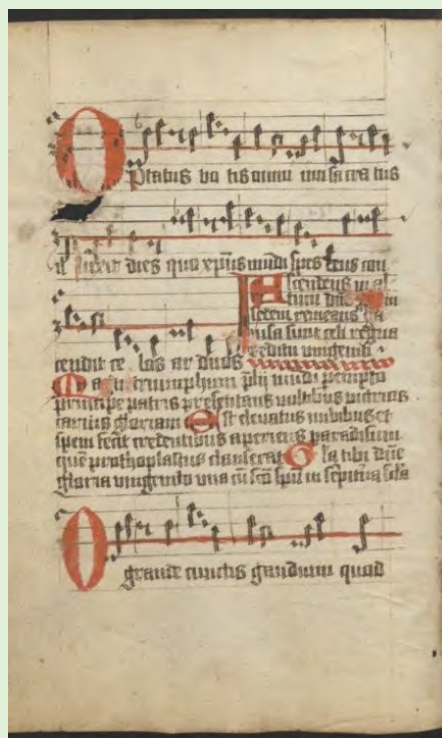 Optatus vo tis omni um sa cra tus
il luxit dies quo xp̄us mūdi spes deus con
Ascendens in al
tum dn̄s
sedem remeans ga
visa sunt celi regna
scendit ce los ar duos reditu unigeniti
Magni triumphum p̄lij mundi pempto
principe patris presentans vultibus victricis
carnis gloriam Est elevatus nubibus et
spem fecit credentibus aperiens paradisum
quē prothoplastus clauserat Gl̄a tibi dn̄e
gloria unigenito una cū sc̄o sp̄u in sēpit̄na sc̄la
O grande cunctis gaudium quod